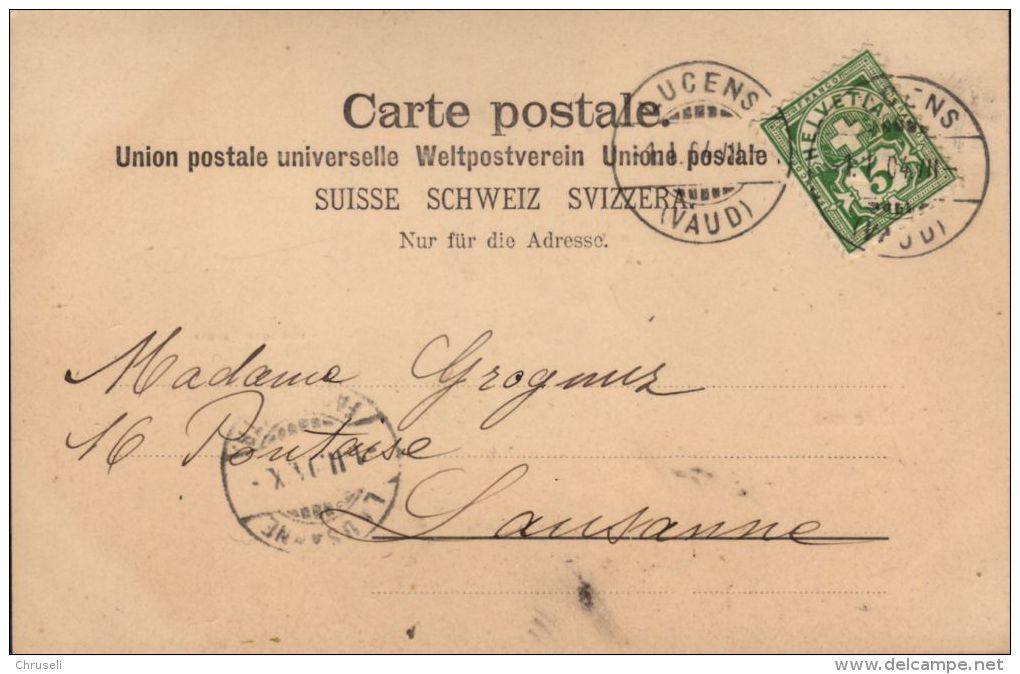 Carte postale.
Union postale universelle Weltpostverein Unione postale
SUISSE SCHWEIZ SVIZZERA.
Nur für die Adresse.
LUCENS
(VAUD)
FRANCO
HELVETIA
5
UCENS
(VAUD)
Madame Grognuz
16 Pontaise
Lausanne
LAUSANNE
Chruseli
delcampe.net